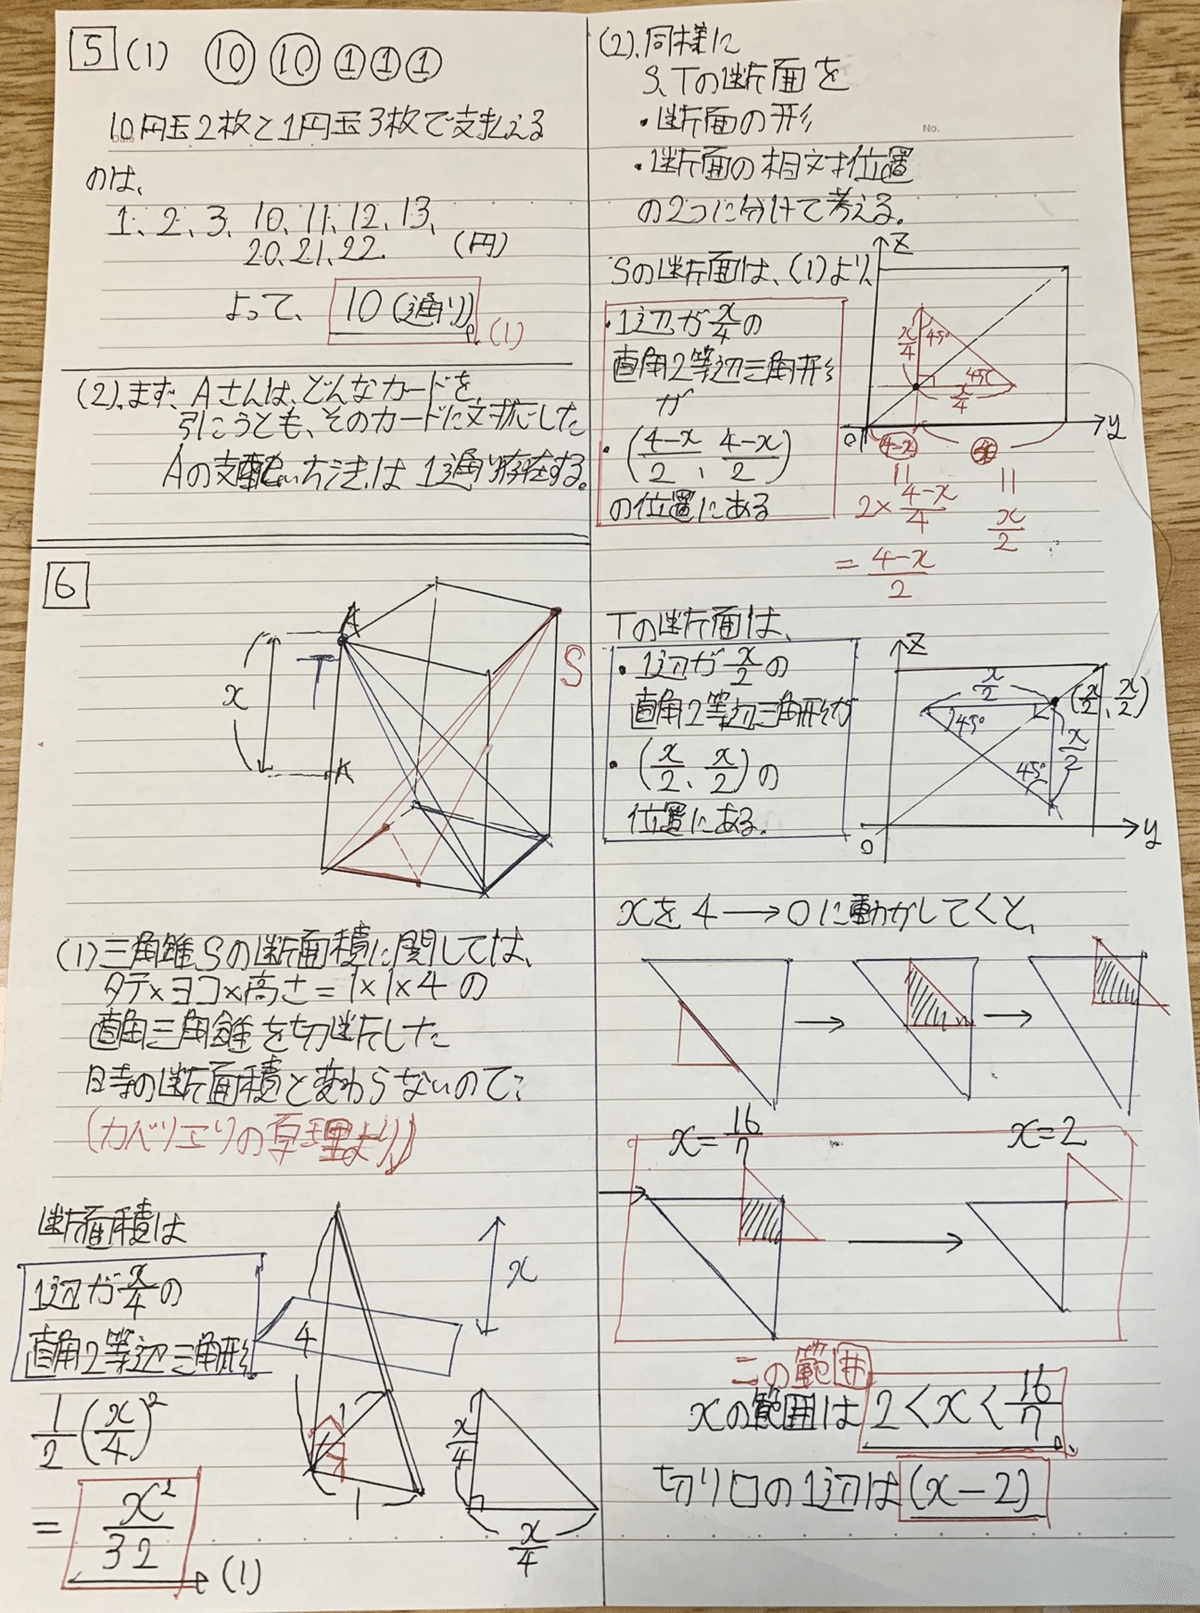 5 (1) 10 10 1 1 1
10円玉2枚と1円玉3枚で支払える
のは、
1、2、3、10、11、12、13、
20、21、22. (円)
よって、10(通り) (1)
(2).まず、Aさんは、どんなカードを、
引こうとも、そのカードに対応した
Aの支払い方法は1通り存在する。
6
A
T
S
x
A
(1)三角錐Sの断面積に関しては、
タテ×ヨコ×高さ=1×1×4の
直角三角錐を切断した
時の断面積と変わらないので
(カベリエリの原理より)
断面積は
1辺がx/4の
直角2等辺三角形
1/2(x/4)²
= x²/32 (1)
4
1
1
x
x/4
x/4
(2).同様に
S、Tの断面を
・断面の形
・断面の相対位置
の2つに分けて考える。
No.
Sの断面は、(1)より、
・1辺がx/4の
直角2等辺三角形
が
・(4-x/2、4-x/2)
の位置にある
z
x/4
45°
45°
x/4
0
y
4-x
x
2×4-x/4
x/2
=4-x/2
Tの断面は、
・1辺がx/2の
直角2等辺三角形が
・(x/2、x/2)の
位置にある。
z
x/2
(x/2、x/2)
45°
x/2
45°
0
y
xを4→0に動かしてくと、
x=16/7
x=2
この範囲
xの範囲は2<x<16/7
切り口の1辺は(x-2)